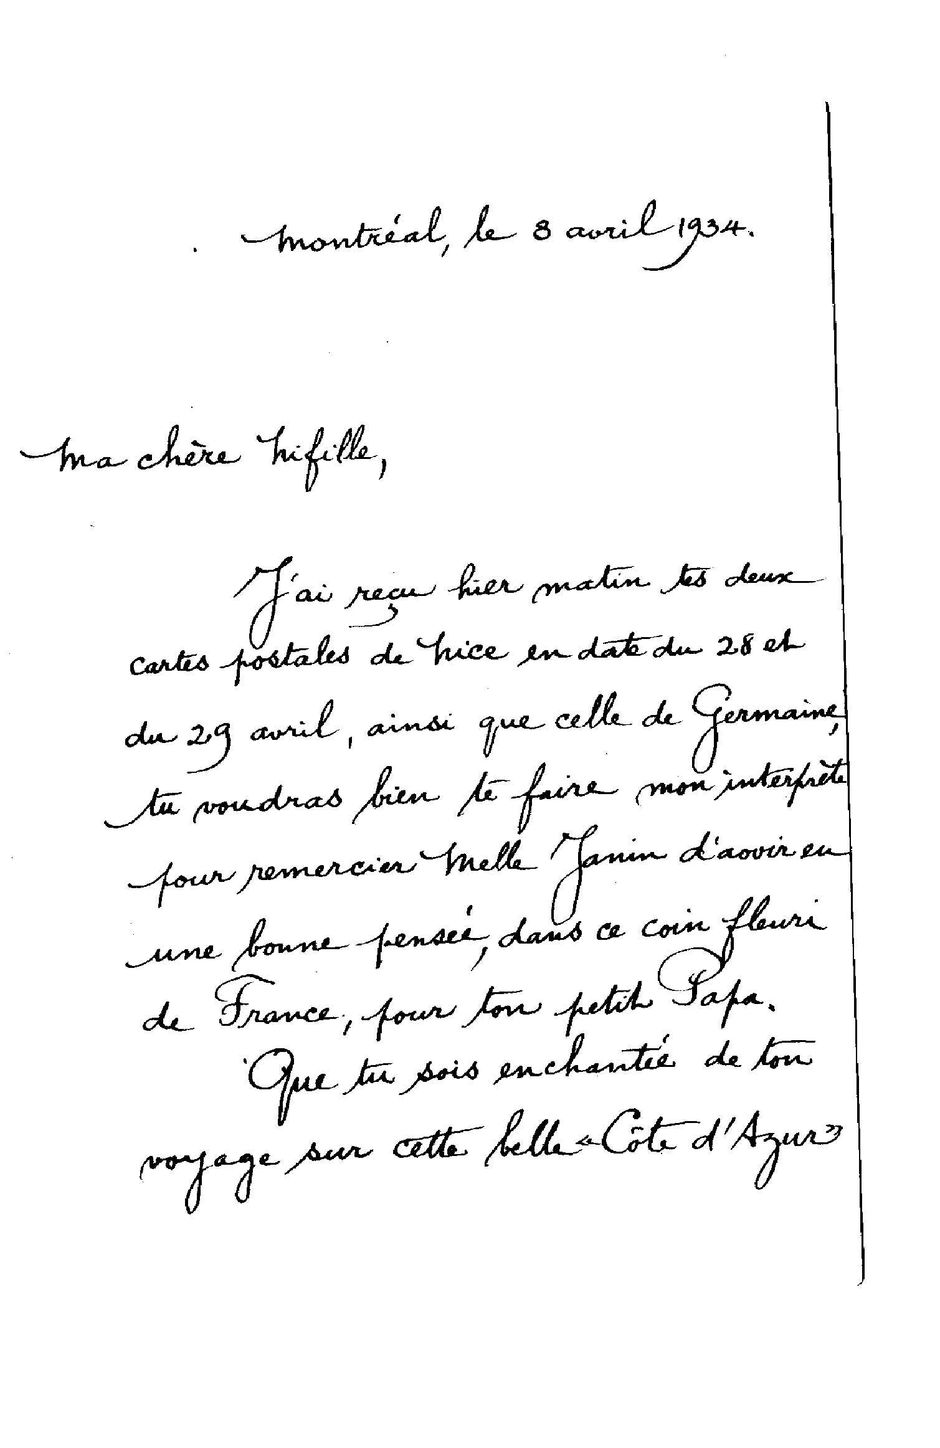 Montréal, le 8 avril 1934.
Ma chère Nifille,
J'ai reçu hier matin tes deux
cartes postales de Nice en date du 28 et
du 29 avril, ainsi que celle de Germaine,
tu voudras bien te faire mon interprète
pour remercier Melle Janin d'aovir eu
une bonne pensée, dans ce coin fleuri
de France, pour ton petit Papa.
Que tu sois enchantée de ton
voyage sur cette belle «Côte d'Azur»